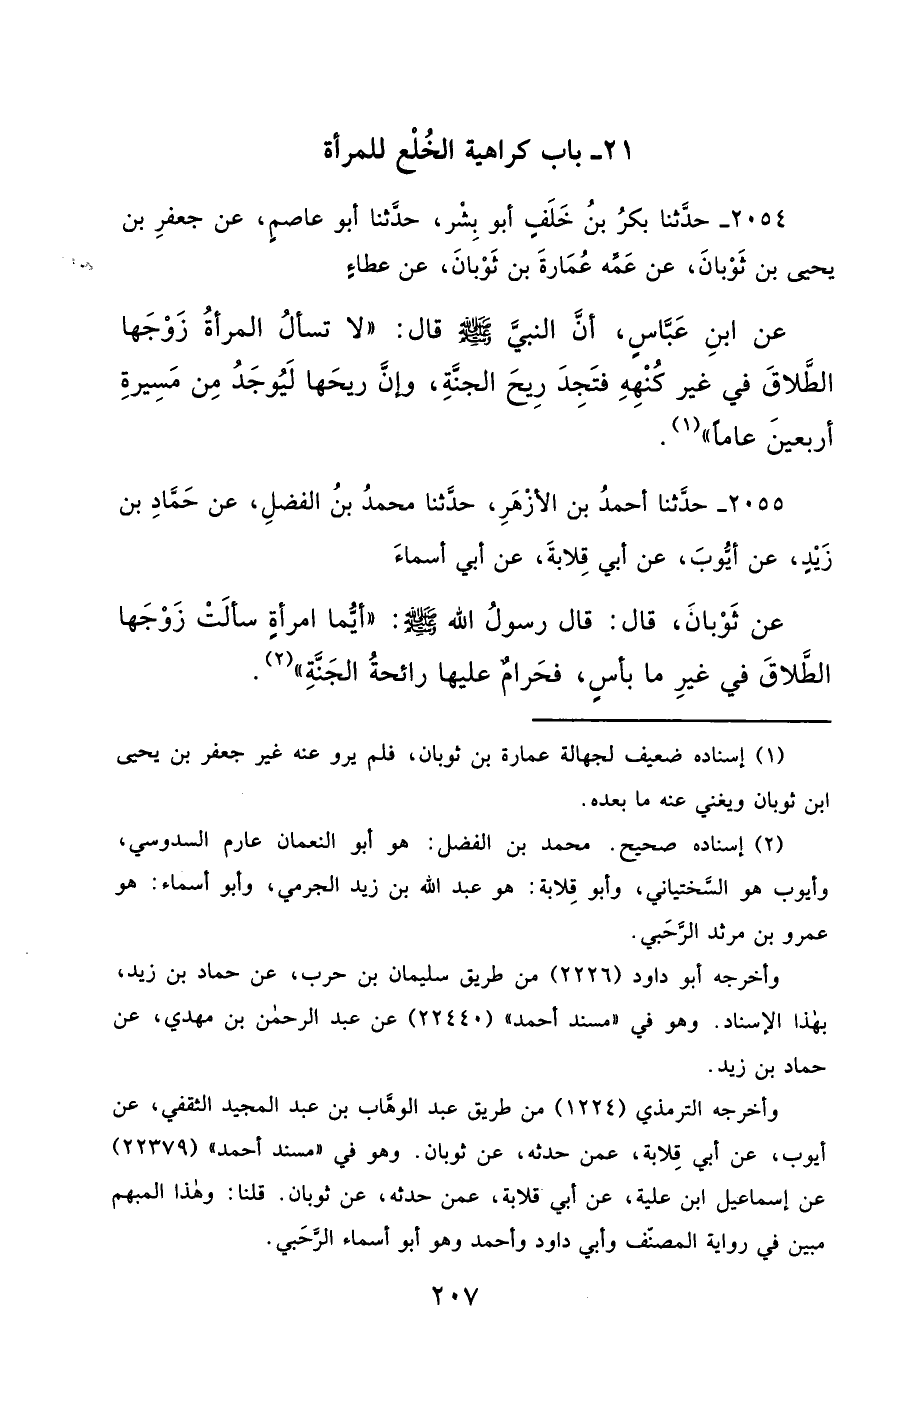 ٢١ـ باب كراهية الخُلْع للمرأة
٢٠٥٤ـ حدَّثنا بكرُ بنُ خَلَفٍ أبو بِشْر، حدَّثنا أبو عاصمٍ، عن جعفرِ بن
يحيى بن ثَوْبانَ، عن عَمِّه عُمَارةَ بن ثَوْبانَ، عن عطاءٍ
عن ابنِ عَبَّاسٍ، أنَّ النبيَّ ﷺ قال: «لا تسألُ المرأةُ زَوْجَها
الطَّلاقَ في غير كُنْهِهِ فتَجِدَ رِيحَ الجنَّةِ، وإنَّ ريحَها لَيُوجَدُ مِن مَسِيرةِ
أربعينَ عاماً»(١).
٢٠٥٥ـ حدَّثنا أحمدُ بن الأزْهَرِ، حدَّثنا محمدُ بنُ الفضلِ، عن حَمَّادِ بن
زَيْدٍ، عن أيُّوبَ، عن أبي قِلابةَ، عن أبي أسماءَ
عن ثَوْبانَ، قال: قال رسولُ الله ﷺ: «أيُّما امرأةٍ سألَتْ زَوْجَها
الطَّلاقَ في غيرِ ما بأسٍ، فحَرامٌ عليها رائحةُ الجَنَّةِ»(٢).
(١) إسناده ضعيف لجهالة عمارة بن ثوبان، فلم يرو عنه غير جعفر بن يحيى
ابن ثوبان ويغني عنه ما بعده.
(٢) إسناده صحيح. محمد بن الفضل: هو أبو النعمان عارم السدوسي،
وأيوب هو السَّختياني، وأبو قِلابة: هو عبد الله بن زيد الجرمي، وأبو أسماء: هو
عمرو بن مرثد الرَّحَبي.
وأخرجه أبو داود (٢٢٢٦) من طريق سليمان بن حرب، عن حماد بن زيد،
بهٰذا الإسناد. وهو في «مسند أحمد» (٢٢٤٤٠) عن عبد الرحمٰن بن مهدي، عن
حماد بن زيد.
وأخرجه الترمذي (١٢٢٤) من طريق عبد الوهَّاب بن عبد المجيد الثقفي، عن
أيوب، عن أبي قِلابة، عمن حدثه، عن ثوبان. وهو في «مسند أحمد» (٢٢٣٧٩)
عن إسماعيل ابن علية، عن أبي قلابة، عمن حدثه، عن ثوبان. قلنا: وهٰذا المبهم
مبين في رواية المصنّف وأبي داود وأحمد وهو أبو أسماء الرَّحَبي.
٢٠٧